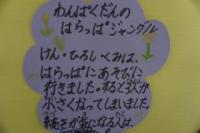 わんぱくだんの
はらっぱジャングル
けん・ひろし・くみは、
はらっぱにあそびに
行きました。すると3人が
小さくなってしまいました。
続きが気になる人は、